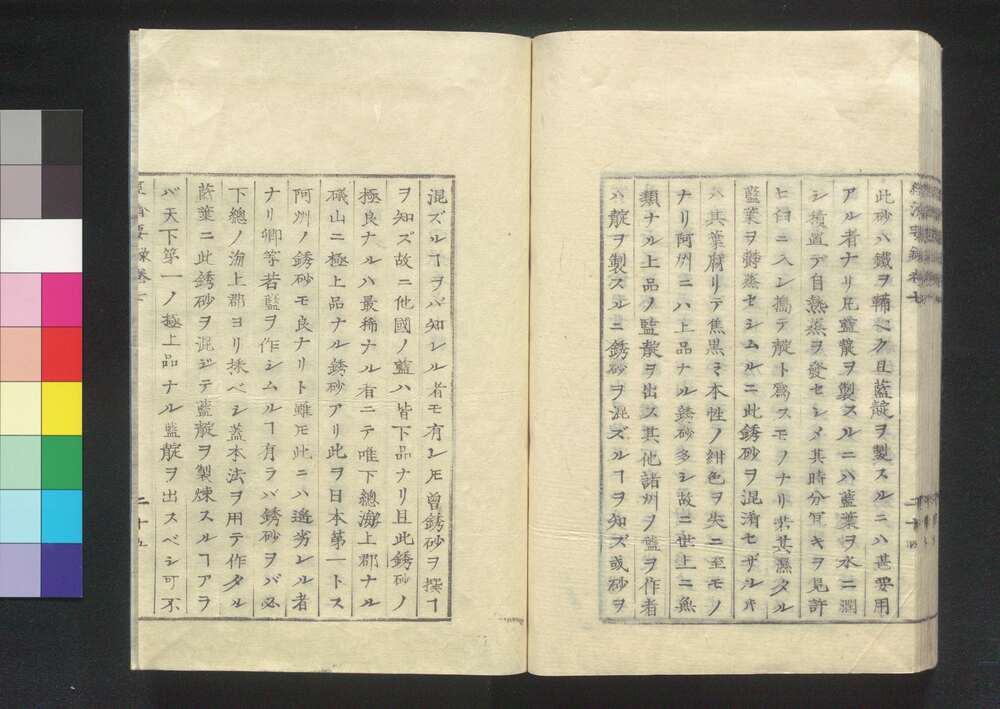 此砂ハ鐵ヲ輔ベク且藍靛ヲ製スルニハ甚要用
アル者ナリ凡藍靛ヲ製スルニハ藍葉ヲ水ニ潤
シ積置テ自熱蒸ヲ發セシメ其時分宜キヲ見計
ヒ臼ニ入レ搗テ靛ト爲スモノナリ若其濕タル
藍葉ヲ蒸セシムルニ此銹砂ヲ混淆セザルトキ
ハ其葉腐リテ焦黒ミ本性ノ紺色ヲ失ニ至モノ
ナリ阿州ニハ上品ナル銹砂多シ故ニ世上ニ無
類ナル上品ノ藍靛ヲ出ス其他諸州ヲ藍ヲ作者
ハ靛ヲ製スルニ銹砂ヲ混ズルヿヲ知ズ或砂ヲ
二十四
混ズルヿヲバ知レル者モ有レ𪜈曾銹砂ヲ撰ヿ
ヲ知ズ故ニ他國ノ藍ハ皆下品ナリ且此銹砂ノ
極良ナルハ最稀ナル有ニテ唯下總海上郡ナル
磯山ニ極上品ナル銹砂アリ此ヲ日本第一トス
阿州ノ銹砂モ良ナリト雖𪜈此ニハ遙劣レル者
ナリ卿等若藍ヲ作シムルヿ有ラバ銹砂ヲバ必
下總ノ海上郡ヨリ採ベシ蓋本法ヲ用テ作タル
藍葉ニ此銹砂ヲ混ジテ藍靛ヲ製煉スルヿアラ
バ天下第一ノ極上品ナル藍靛ヲ出スベシ可不
二十五